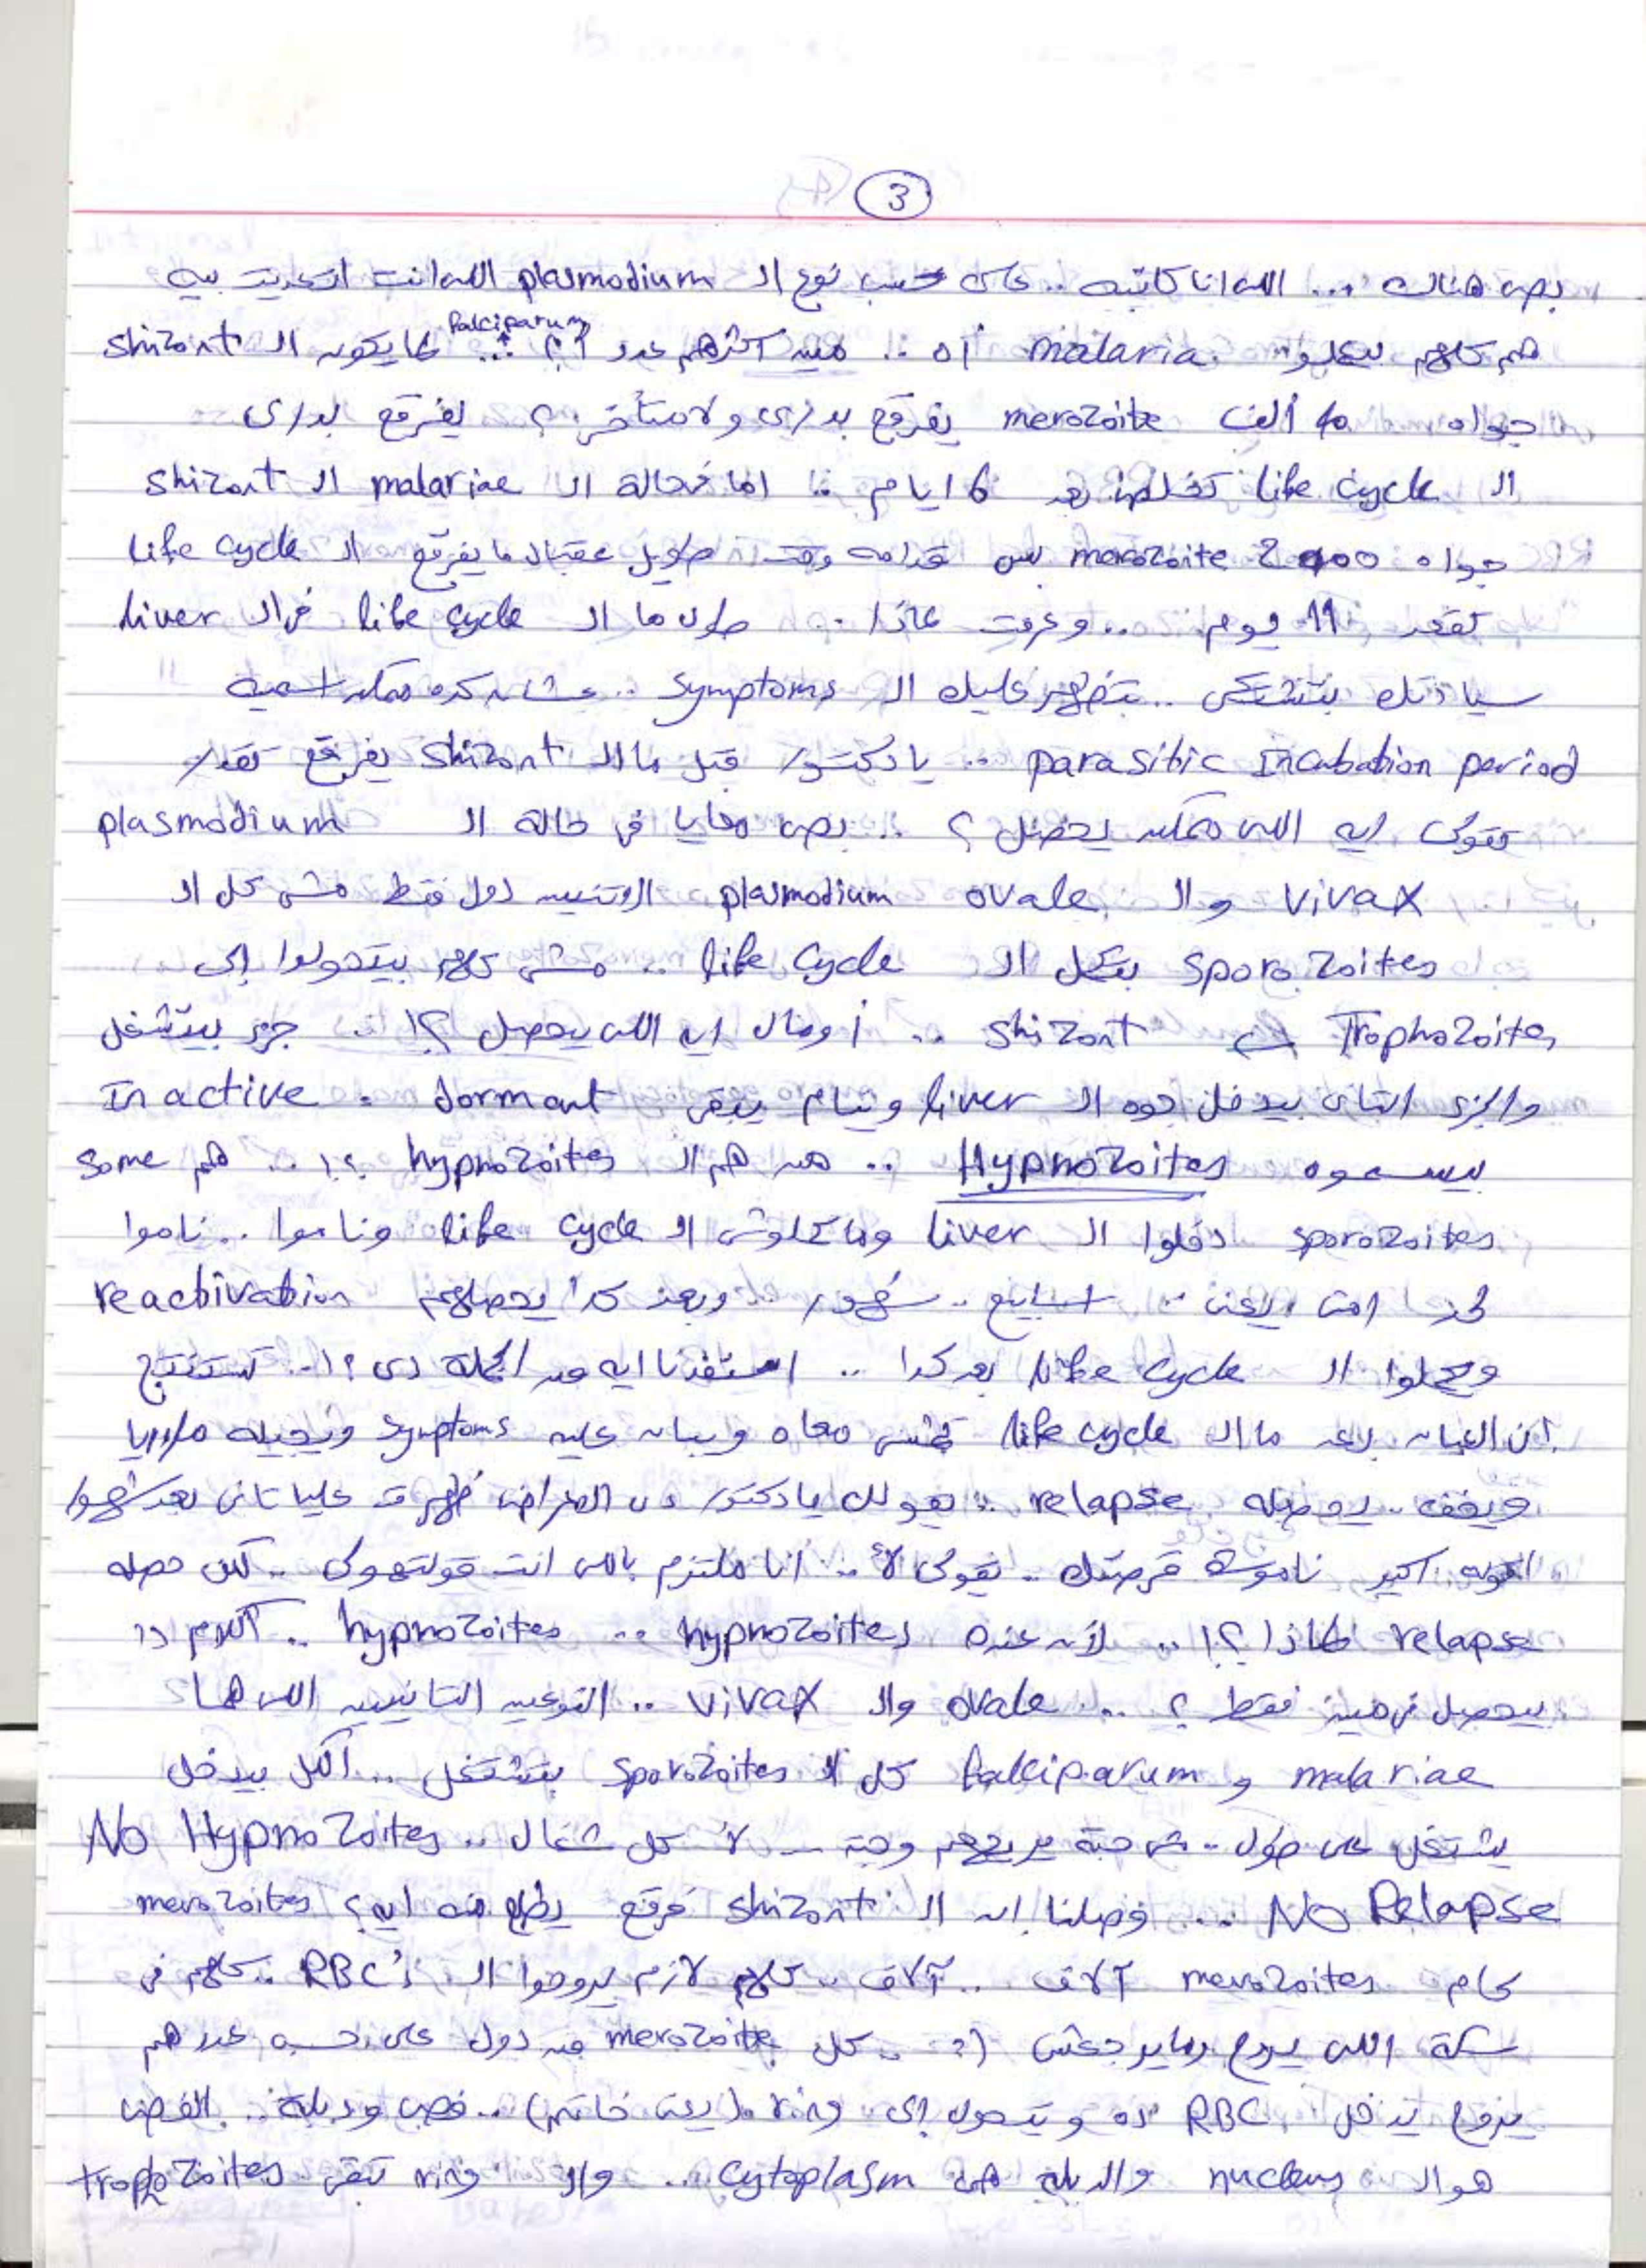 3
بص هناك ... اللي انا كاتبه .. على حسب نوع الـ plasmodium اللي انت اتعديت بيه
هم كلهم بيعملوا malaria اه .. مين اكثرهم عدد ؟؟ falciparum .. لما يكون الـ shizont
جواه 40 ألف merozoite يفرقع بدري ولا متأخر ؟ يفرقع بدري
الـ life cycle تخلص بعد 6 ايام .. اما في حالة الـ malariae الـ shizont
جواه 2000 merozoite بس قدامه وقت طويل عقبال ما يفرقع الـ life cycle
تقعد 11 يوم .. وعرفت لماذا .. طول ما الـ life cycle في الـ liver
سيادتك بتشتكي .. بتظهر عليك الـ symptoms .. عشان كده ممكن اسميه
parasitic Incubation period .. يا دكتور قبل ما الـ shizont يفرقع تقدر
تقولي ايه اللي ممكن يحصل ؟ .. بص معايا في حالة الـ plasmodium
vivax والـ plasmodium ovale الاتنين دول فقط مش كل الـ
sporozoites بتكمل الـ life cycle .. مش كلهم بيتحولوا إلى
Trophozoites → shizont .. أومال ايه اللي يحصل ؟! .. جزء بيتشغل
والجزء التاني بيدخل جوه الـ liver وينام يبقى dormant = In active
بيسموه Hypnozoites .. مين هم الـ hypnozoites ؟! .. هم some
sporozoites دخلوا الـ liver وما كملوش الـ life cycle وناموا .. ناموا
لحد امتى يعني .. اسابيع .. شهور .. وبعد كدا يحصلهم reactivation
ويكملوا الـ life cycle بعد كدا .. استفدنا ايه من الجملة دي ؟! .. تستنتج
ان العيان بعد ما الـ life cycle تمشي معاه ويبان عليه symptoms وتجيله ملاريا
ويخف .. يحصله relapse .. يقولك يا دكتور دى الاعراض ظهرت عليا تاني بعد شهور
اقوله اكيد ناموسة قرصتك .. يقولي لأ .. انا ملتزم باللي انت قولتهولي .. لكن حصله
relapse لماذا ؟! .. لأن عنده hypnozoites .. hypnozoites .. الكلام دا
بيحصل في مين فقط ؟ .. ovale والـ vivax .. النوعين التانيين اللي هما
malariae و falciparum كل الـ sporozoites بتشتغل .. الكل بيدخل
يشتغل على طول .. مش حبة يريحهم وحبة — لأ كل شغال .. No Hypnozoites
No Relapse ... وصلنا ان الـ shizont فرقع يطلع منه ايه ؟ merozoites
كام merozoites آلاف .. آلاف .. كلهم لازم يروحوا الـ RBC's .. كلهم في
سكة اللي يروح وما يرجعش :) .. كل merozoite من دول على حسب عددهم
يروح يدخل RBC ده ويتحول إلى ring (يعني خاتم) .. فص ودبلة .. الفص
هو الـ nucleus والدبلة هي cytoplasm .. والـ ring تبقى trophozoites